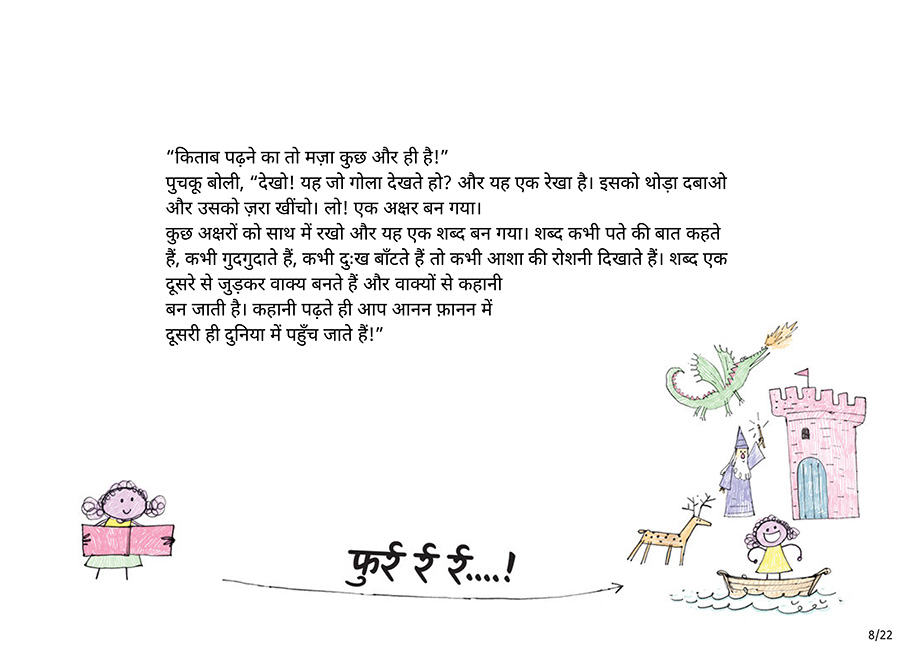 “किताब पढ़ने का तो मज़ा कुछ और ही है!”
पुचकू बोली, “देखो! यह जो गोला देखते हो? और यह एक रेखा है। इसको थोड़ा दबाओ
और उसको ज़रा खींचो। लो! एक अक्षर बन गया।
कुछ अक्षरों को साथ में रखो और यह एक शब्द बन गया। शब्द कभी पते की बात कहते
हैं, कभी गुदगुदाते हैं, कभी दुःख बाँटते हैं तो कभी आशा की रोशनी दिखाते हैं। शब्द एक
दूसरे से जुड़कर वाक्य बनते हैं और वाक्यों से कहानी
बन जाती है। कहानी पढ़ते ही आप आनन फ़ानन में
दूसरी ही दुनिया में पहुँच जाते हैं!”
फुर्र ई ई....!
8/22